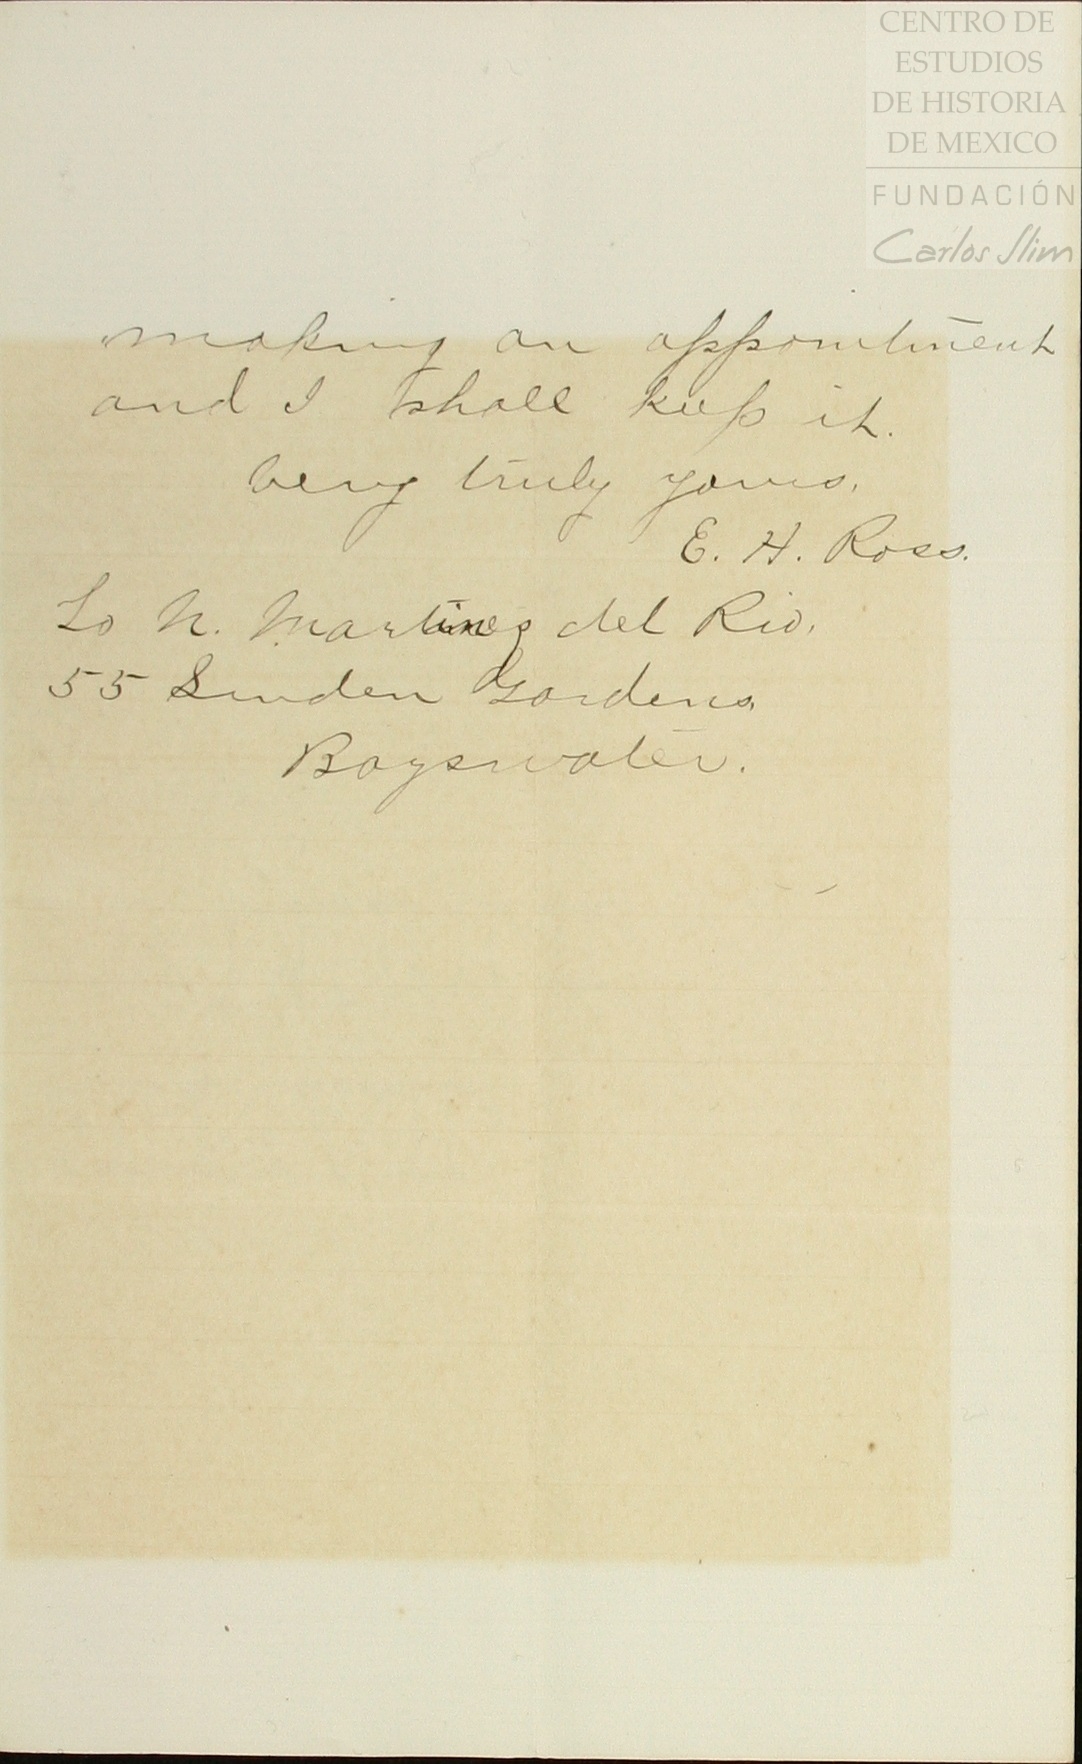 CENTRO DE
ESTUDIOS
DE HISTORIA
DE MEXICO
FUNDACIÓN
Carlos Slim
making an appointment
and I shall keep it.
Very truly yours,
E. H. Ross.
To N. Martinez del Rio,
55 Linden Gardens,
Bayswater.